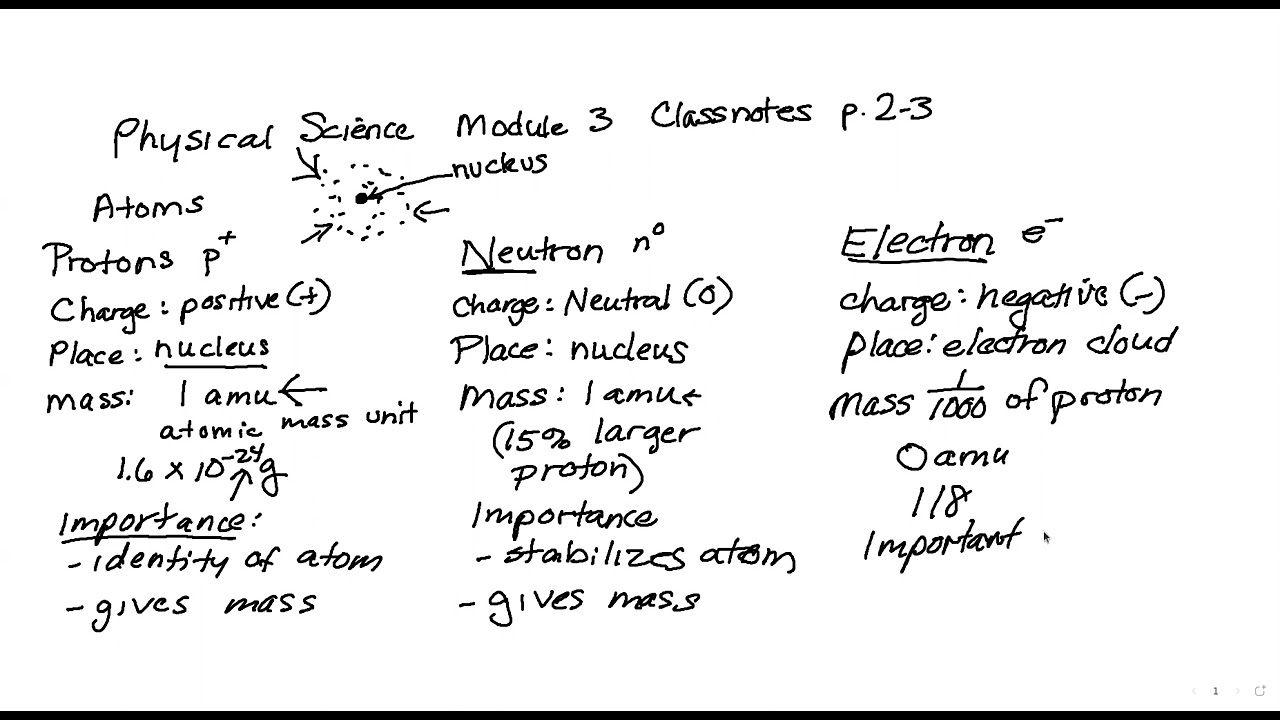 Physical Science Module 3 Classnotes p. 2-3
nucleus
Atoms
Protons p+
Charge: positive (+)
Place: nucleus
mass: 1 amu
atomic mass unit
1.6 x 10^-24 g
Importance:
- identity of atom
- gives mass
Neutron n^0
Charge: Neutral (0)
Place: nucleus
Mass: 1 amu
(15% larger
proton)
Importance
- stabilizes atom
- gives mass
Electron e^-
charge: negative (-)
place: electron cloud
Mass 1/1000 of proton
0 amu
118
Important
1